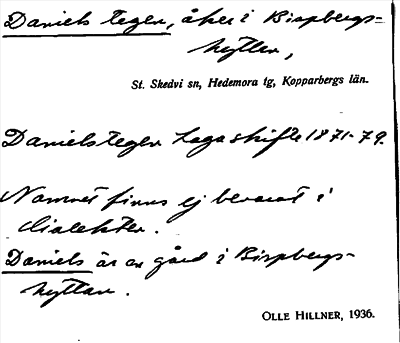 Daniels tegen, åker i Bispbergs-
hyttan,
St. Skedvi sn, Hedemora tg, Kopparbergs län.
Danielstegen Laga skifte 1871-79.
Namnet finns ej bevarat i
dialekten.
Daniels är en gård i Bispbergs-
hyttan.
OLLE HILLNER, 1936.